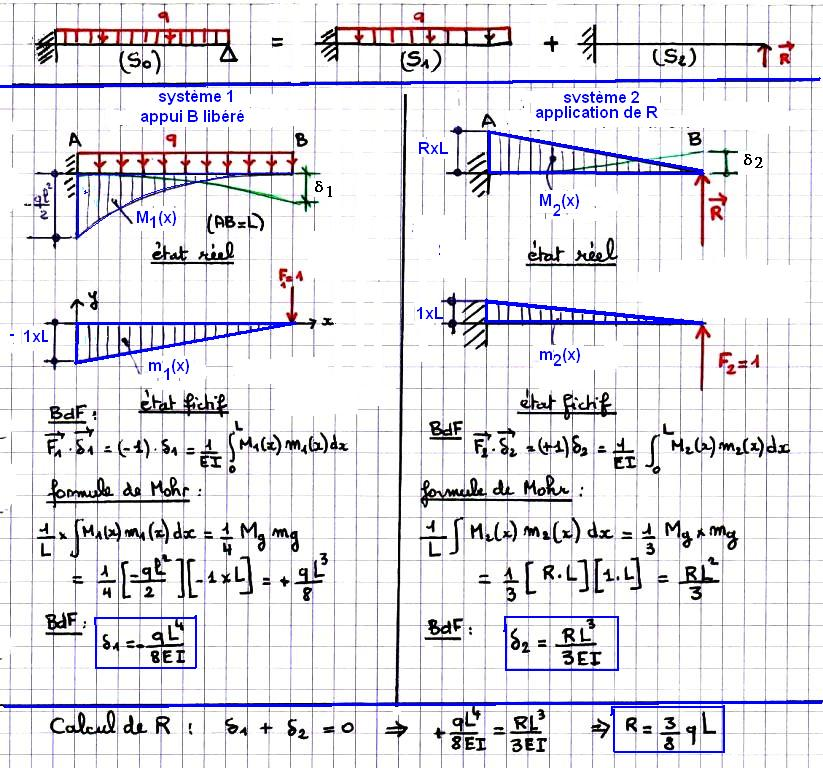 q
q
(S₀) = (S₁) + (S₂) R⃗
système 1
appui B libéré
A q B
δ₁
-qL²/2
M₁(x)
(AB=L)
état réel
F₁=1
y
x
- 1xL
m₁(x)
état fictif
BdF :
F₁⃗ . δ₁⃗ = (-1) . δ₁ = 1/EI ∫₀ᴸ M₁(x) m₁(x) dx
formule de Mohr :
1/L × ∫ M₁(x) m₁(x) dx = 1/4 Mg mg
= 1/4 [-qL²/2] [-1 x L] = + qL³/8
BdF :
δ₁ = - qL⁴/8EI
système 2
application de R
A
B
RxL
δ2
M₂(x)
R⃗
état réel
1xL
m₂(x)
F₂=1
état fictif
BdF
F₂⃗ . δ₂⃗ = (+1) δ₂ = 1/EI ∫₀ᴸ M₂(x) m₂(x) dx
formule de Mohr :
1/L ∫ M₂(x) m₂(x) dx = 1/3 Mg × mg
= 1/3 [R.L] [1.L] = RL²/3
BdF :
δ₂ = RL³/3EI
Calcul de R : δ₁ + δ₂ = 0 ⇒ + qL⁴/8EI = RL³/3EI ⇒ R = 3/8 qL